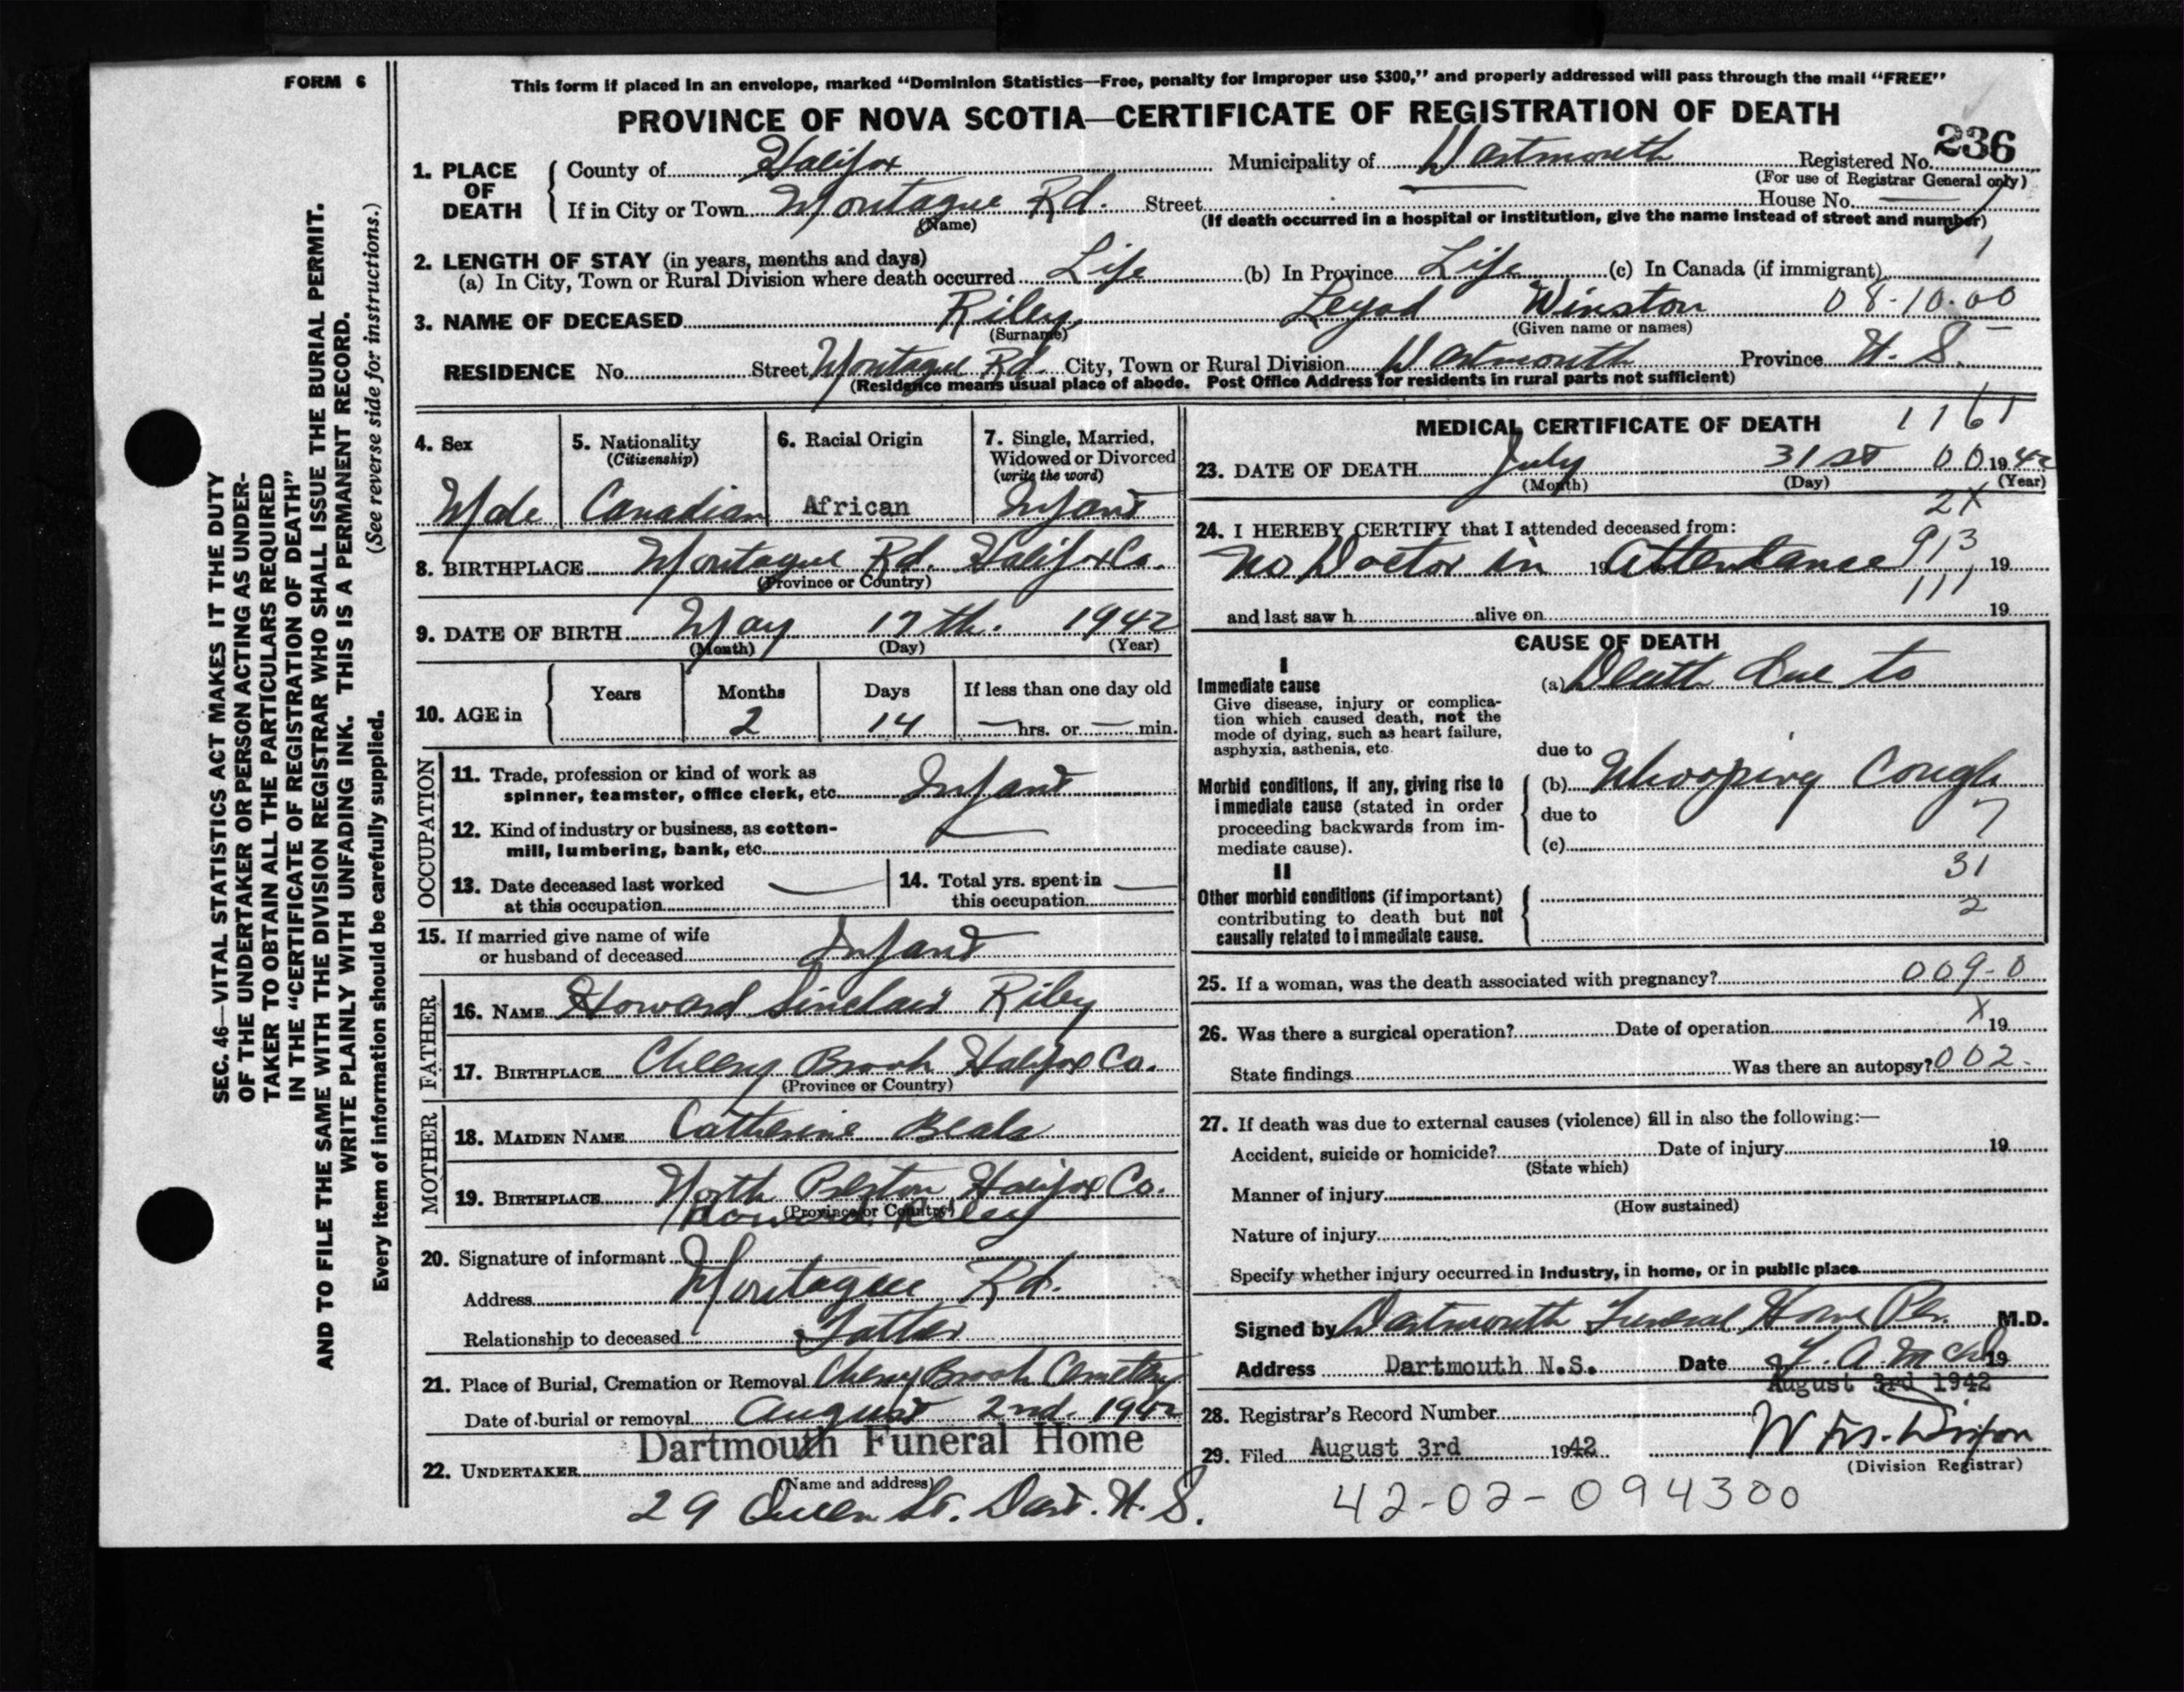 FORM 6
This form if placed in an envelope, marked "Dominion Statistics—Free, penalty for improper use $300," and properly addressed will pass through the mail "FREE"
PROVINCE OF NOVA SCOTIA—CERTIFICATE OF REGISTRATION OF DEATH
236
1. PLACE OF DEATH
County of Halifax Municipality of Dartmouth Registered No.
(For use of Registrar General only)
If in City or Town Montague Rd. Street House No.
(Name) (If death occurred in a hospital or institution, give the name instead of street and number)
2. LENGTH OF STAY (in years, months and days)
1
(a) In City, Town or Rural Division where death occurred Life (b) In Province Life (c) In Canada (if immigrant)
3. NAME OF DECEASED Riley, Winston 08-10-00
(Surname) (Given name or names)
RESIDENCE No. Street Montague Rd. City, Town or Rural Division Dartmouth Province N. S.
(Residence means usual place of abode. Post Office Address for residents in rural parts not sufficient)
4. Sex
Male
5. Nationality
(Citizenship)
Canadian
6. Racial Origin
African
7. Single, Married,
Widowed or Divorced
(write the word)
Infant
8. BIRTHPLACE Montague Rd. Halifax Co.
(Province or Country)
9. DATE OF BIRTH May 17th. 1942
(Month) (Day) (Year)
10. AGE in
Years Months Days If less than one day old
2 14 — hrs. or — min.
OCCUPATION
11. Trade, profession or kind of work as
spinner, teamster, office clerk, etc. Infant
12. Kind of industry or business, as cotton-
mill, lumbering, bank, etc.
13. Date deceased last worked
at this occupation
14. Total yrs. spent in
this occupation
15. If married give name of wife
or husband of deceased Infant
FATHER
16. NAME Howard Sinclair Riley
17. BIRTHPLACE Cherry Brook Halifax Co.
(Province or Country)
MOTHER
18. MAIDEN NAME Catherine Beals
19. BIRTHPLACE North Preston Halifax Co.
(Province or Country)
Howard Riley
20. Signature of informant
Address Montague Rd.
Relationship to deceased Father
21. Place of Burial, Cremation or Removal Cherry Brook Cemetery
Date of burial or removal August 2nd. 1942
Dartmouth Funeral Home
22. UNDERTAKER
(Name and address)
29 Queen St. Dart. N. S.
MEDICAL CERTIFICATE OF DEATH 1161
23. DATE OF DEATH July 31st 00 1942
(Month) (Day) (Year)
2X
24. I HEREBY CERTIFY that I attended deceased from:
No Doctor in 19 Attendance 913 19
111
and last saw h alive on 19
CAUSE OF DEATH
I
Immediate cause
Give disease, injury or complica-
tion which caused death, not the
mode of dying, such as heart failure,
asphyxia, asthenia, etc.
(a) Death due to
due to
Morbid conditions, if any, giving rise to
immediate cause (stated in order
proceeding backwards from im-
mediate cause).
(b) Whooping Cough
due to
7
(c)
II
31
Other morbid conditions (if important)
contributing to death but not
causally related to immediate cause.
2
25. If a woman, was the death associated with pregnancy? 009-0
26. Was there a surgical operation? Date of operation X 19
State findings Was there an autopsy? 002-
27. If death was due to external causes (violence) fill in also the following:—
Accident, suicide or homicide? Date of injury 19
(State which)
Manner of injury
(How sustained)
Nature of injury
Specify whether injury occurred in industry, in home, or in public place
Signed by Dartmouth Funeral Home Per. M.D.
Address Dartmouth N.S. Date 19
August 3rd 1942
28. Registrar's Record Number
29. Filed August 3rd 1942
(Division Registrar)
42-02-094300
SEC. 46—VITAL STATISTICS ACT MAKES IT THE DUTY
OF THE UNDERTAKER OR PERSON ACTING AS UNDER-
TAKER TO OBTAIN ALL THE PARTICULARS REQUIRED
IN THE "CERTIFICATE OF REGISTRATION OF DEATH"
AND TO FILE THE SAME WITH THE DIVISION REGISTRAR WHO SHALL ISSUE THE BURIAL PERMIT.
WRITE PLAINLY WITH UNFADING INK. THIS IS A PERMANENT RECORD.
Every item of information should be carefully supplied. (See reverse side for instructions.)